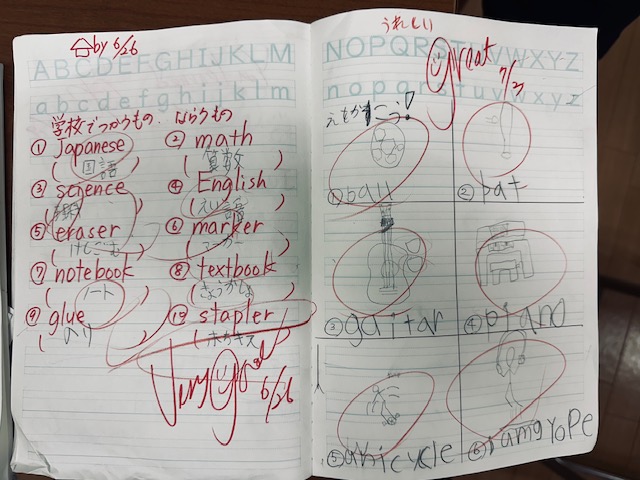 by 6/26
ABCDEFGHIJKLM
abcdefghijklm
学校でつかうもの、ならうもの
① Japanese
(国語)
② math
(算数)
③ science
④ English
(えい語)
⑤ eraser
(けしごむ)
⑥ marker
(マーカー)
⑦ notebook
(ノート)
⑧ textbook
(きょうかしょ)
⑨ glue
(のり)
⑩ stapler
(ホチキス)
Very Good
6/26
うれしい
NOPQRSTUVWXYZ
nopqrstuvwxyz
great
7/3
えもかこう!
① ball
② bat
③ guitar
④ piano
⑤ unicycle
⑥ jamgrope